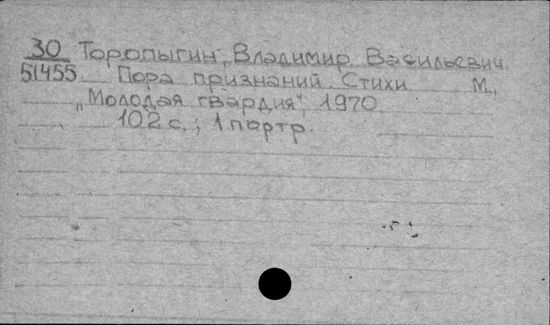 30 Торопыгин, Владимир Васильевич.
51455 Пора признаний. Стихи М.,
„Молодая гвардия", 1970
102 с.; 1 портр.